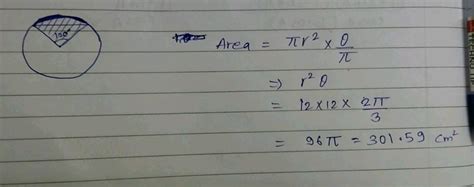 120°
Area = πr² × θ/π
⇒ r²θ
= 12×12× 2π/3
= 96π = 301.59 cm²